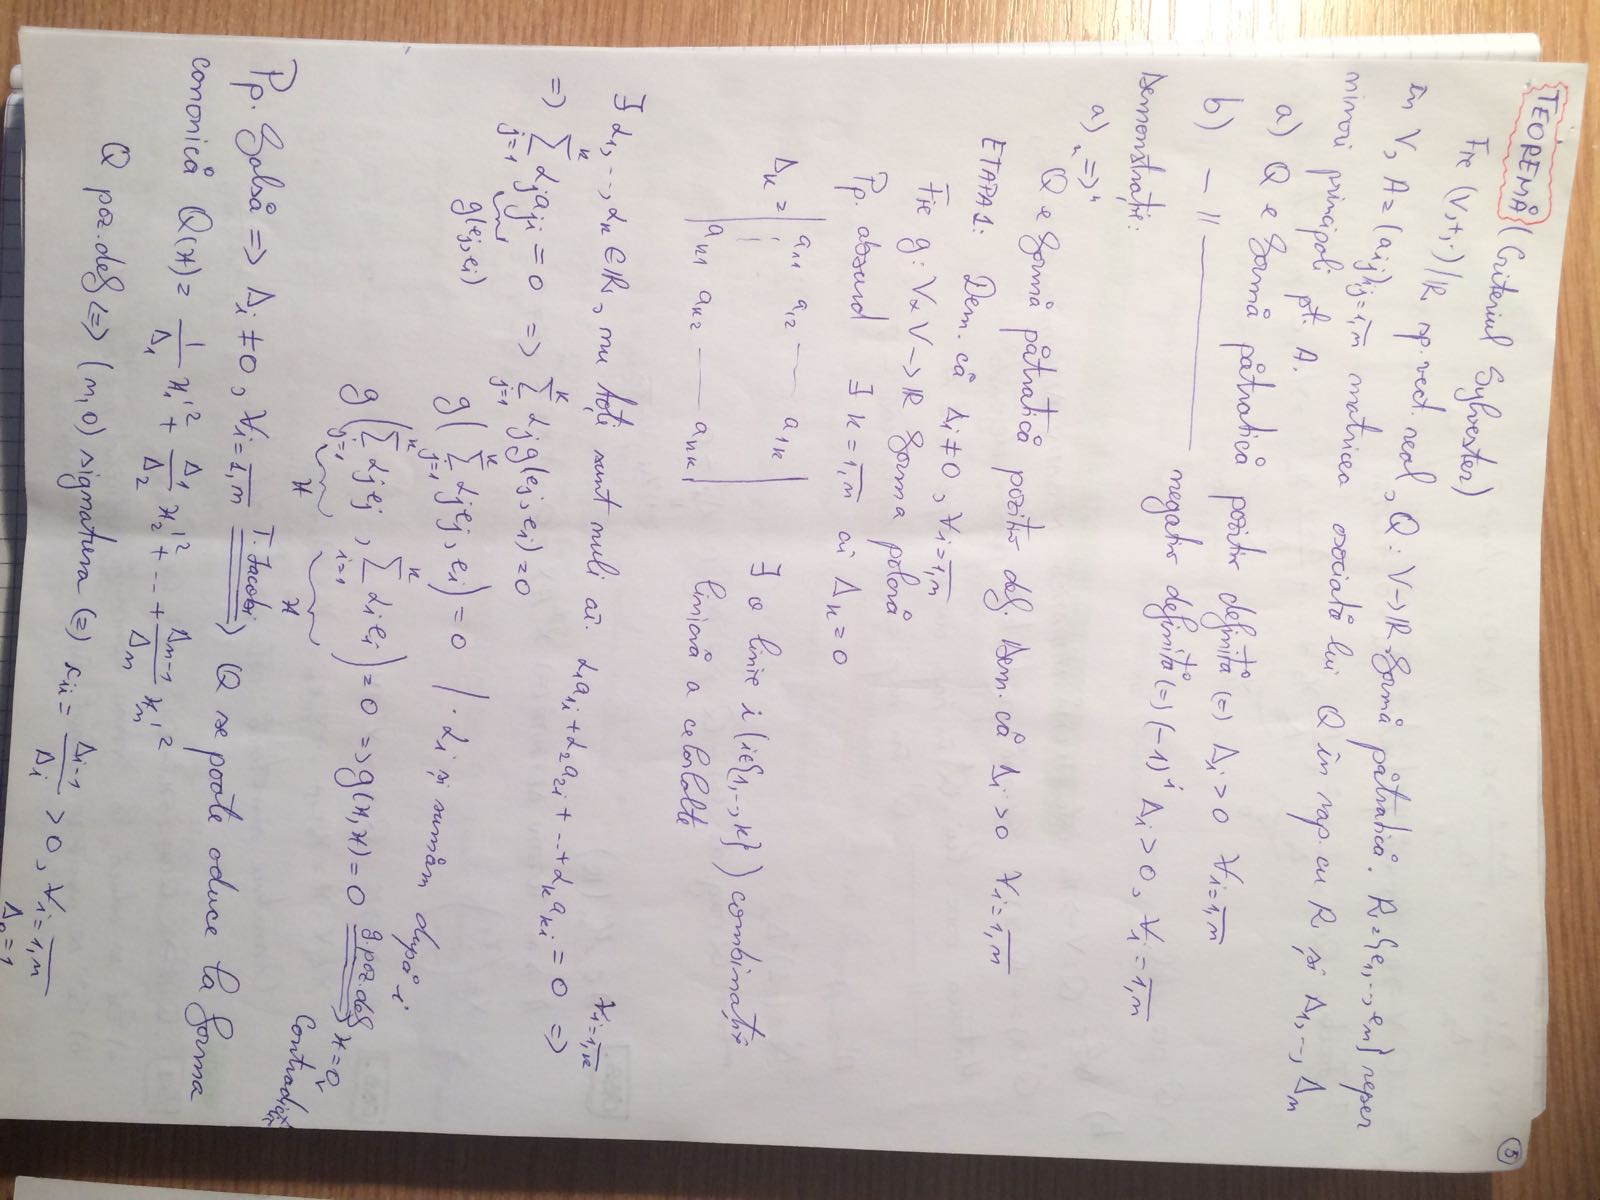 ⑤
TEOREMĂ (Criteriul Sylvester)
Fie (V,+,·)/ℝ sp. vect. real, Q: V→ℝ formă pătratică. R={e₁,..,eₙ} reper
în V, A=(aᵢⱼ)ᵢ,ⱼ=1,n matricea asociată lui Q în rap. cu R și Δ₁,..,Δₙ
minori principali pt. A.
a) Q e formă pătratică pozitiv definită (=) Δᵢ>0 ∀i=1,n
b) — || — negativ definită (=) (-1)ⁱ Δᵢ>0, ∀i=1,n
Demonstrație:
a) „=>"
Q e formă pătratică pozitiv def. Dem. că Δᵢ>0 ∀i=1,n
ETAPA 1: Dem. că Δᵢ≠0, ∀i=1,n
Fie g: V×V→ℝ forma polară
Pp. absurd ∃ k=1,n aî Δₖ=0
Δₖ = | a₁₁ a₁₂ — a₁ₖ |
⋮
| aₖ₁ aₖ₂ — aₖₖ |
∃ o linie i (i∈{1,..,k}) combinație
liniară a celorlalte
∃ α₁,..,αₖ∈ℝ, nu toți sunt nuli aî. α₁a₁ᵢ+α₂a₂ᵢ+..+αₖaₖᵢ=0 => ∀i=1,k
=> Σⱼ₌₁ᵏ αⱼaⱼᵢ=0 => Σⱼ₌₁ᵏ αⱼg(eⱼ,eᵢ)=0
g(eⱼ,eᵢ)
g(Σⱼ₌₁ᵏ αⱼeⱼ, eᵢ)=0 | ·αᵢ și sumăm după i
g(Σⱼ₌₁ᵏ αⱼeⱼ, Σᵢ₌₁ᵏ αᵢeᵢ)=0 => g(x,x)=0 =g.poz.def=> x=0ᵥ
x x
Contradicție
Pp. falsă => Δᵢ≠0, ∀i=1,n =T. Jacobi=> Q se poate aduce la forma
canonică Q(x)= 1/Δ₁ x₁'² + Δ₁/Δ₂ x₂'² + ... + Δₙ₋₁/Δₙ xₙ'²
Q poz. def (=) (n,0) signatura (=) cᵢᵢ = Δᵢ₋₁/Δᵢ >0, ∀i=1,n
Δ₀=1